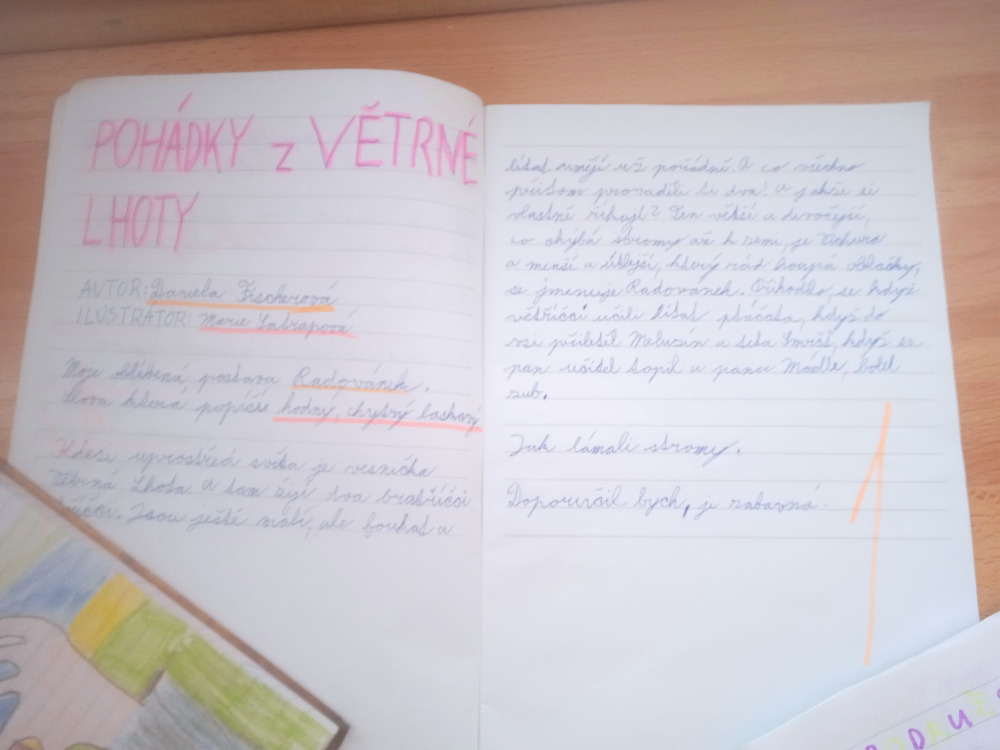 POHÁDKY Z VĚTRNÉ
LHOTY
AUTOR: Daniela Fischerová
ILUSTRÁTOR: Marie Satrapová
Moje oblíbená postava Radovánek.
Slova která popíší hodny, chytrý laskavý
Kdesi uprostřed světa je vesnička
Větrná Lhota. A tam žijí dva bratříčci
Jsou ještě malí, ale foukat a
lítat umějí už pořádně. A co všechno
přitom provaděli ti dva! A jakže si
vlastně říkají? Ten větší a divočejší,
co ohýbá stromy až k zemi, je Vichura
a menší a útlejší, který rád houpá obláčky,
se jmenuje Radovánek. Ojihodilo, se když
větříčci učili lítat ptáčata, když do
vsi přiletěl Meluzín a teta Smršť, když se
pan učitel topil a pance Mádle, bolel
zub.
Jak lámali stromy.
Doporučil bych, je zabavná.
1
D U Ž